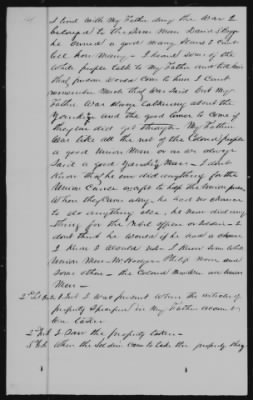 I lived with my Father during the War I
belonged to the same man David Stripe
he owned a good many slaves I cant
tell how many - I heard some of the
white people talk to my Father and told him
that prison would come to him I cant
remember much that was said but my
Father was always talking about the
Yankees and the good times to come if
they ever did get through. My Father
was like all the rest of the Colored people
a good Union Man or as we always
said a good Yankey Man - I dont
know that he ever did anything for the
Union Cause except to help the Union prison
When they ran away. he had no chance
to do anything else, he never did any
thing for the Rebel officers or soldiers - I
dont think he would if he had a chance
I know I would not - I knew him as a
Union Man - Mr Philip Morn and
some other - the Colored Minister we knew
Men -
2nd I was present when the articles of
property specified in my Father account
were taken
2nd I saw the property taken -
5th When the soldiers came to take the property they